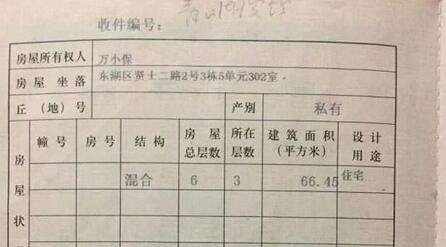 收件编号:
房屋所有权人 万小保
房屋坐落 东湖区贤士二路2号3栋5单元302室.
丘(地)号 产别 私有
幢号 房号 结构 房屋总层数 所在层数 建筑面积(平方米) 设计用途
混合 6 3 66.45 住宅
房屋状